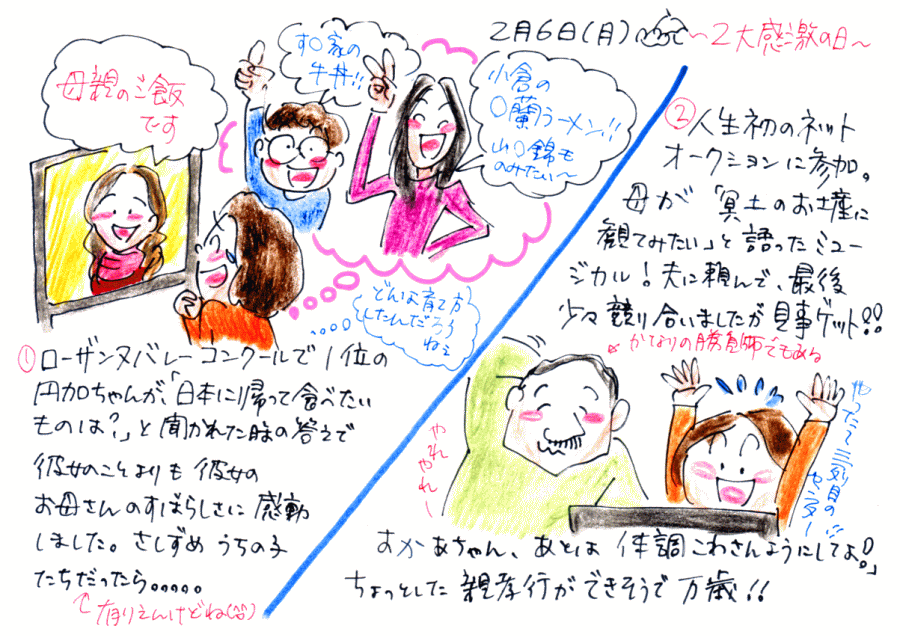 2月6日(月) ～2大感激の日～
母親のご飯
です
す○家の
牛丼!!
小倉の
○蘭ラーメン!!
山○錦も
のみたい～
どんな育て方
したんだろう
ねぇ
① ローザンヌバレーコンクールで1位の
円加ちゃんが、「日本に帰って食べたい
ものは?」と聞かれた時の答えで
彼女のことよりも彼女の
お母さんのすばらしさに感動
しました。さしずめうちの子
たちだったら.....
有りえんけどね(^^)
② 人生初のネット
オークションに参加。
母が「冥土のお土産に
観てみたい」と語ったミュー
ジカル!夫に頼んで、最後
少々競り合いましたが見事ゲット!!
かなりの勝負師でもある
やれ
やれー
やったー三列目の
センター!!
おかあちゃん、あとは体調こわさんようにしてよ!」
ちょっとした親孝行ができそうで万歳!!